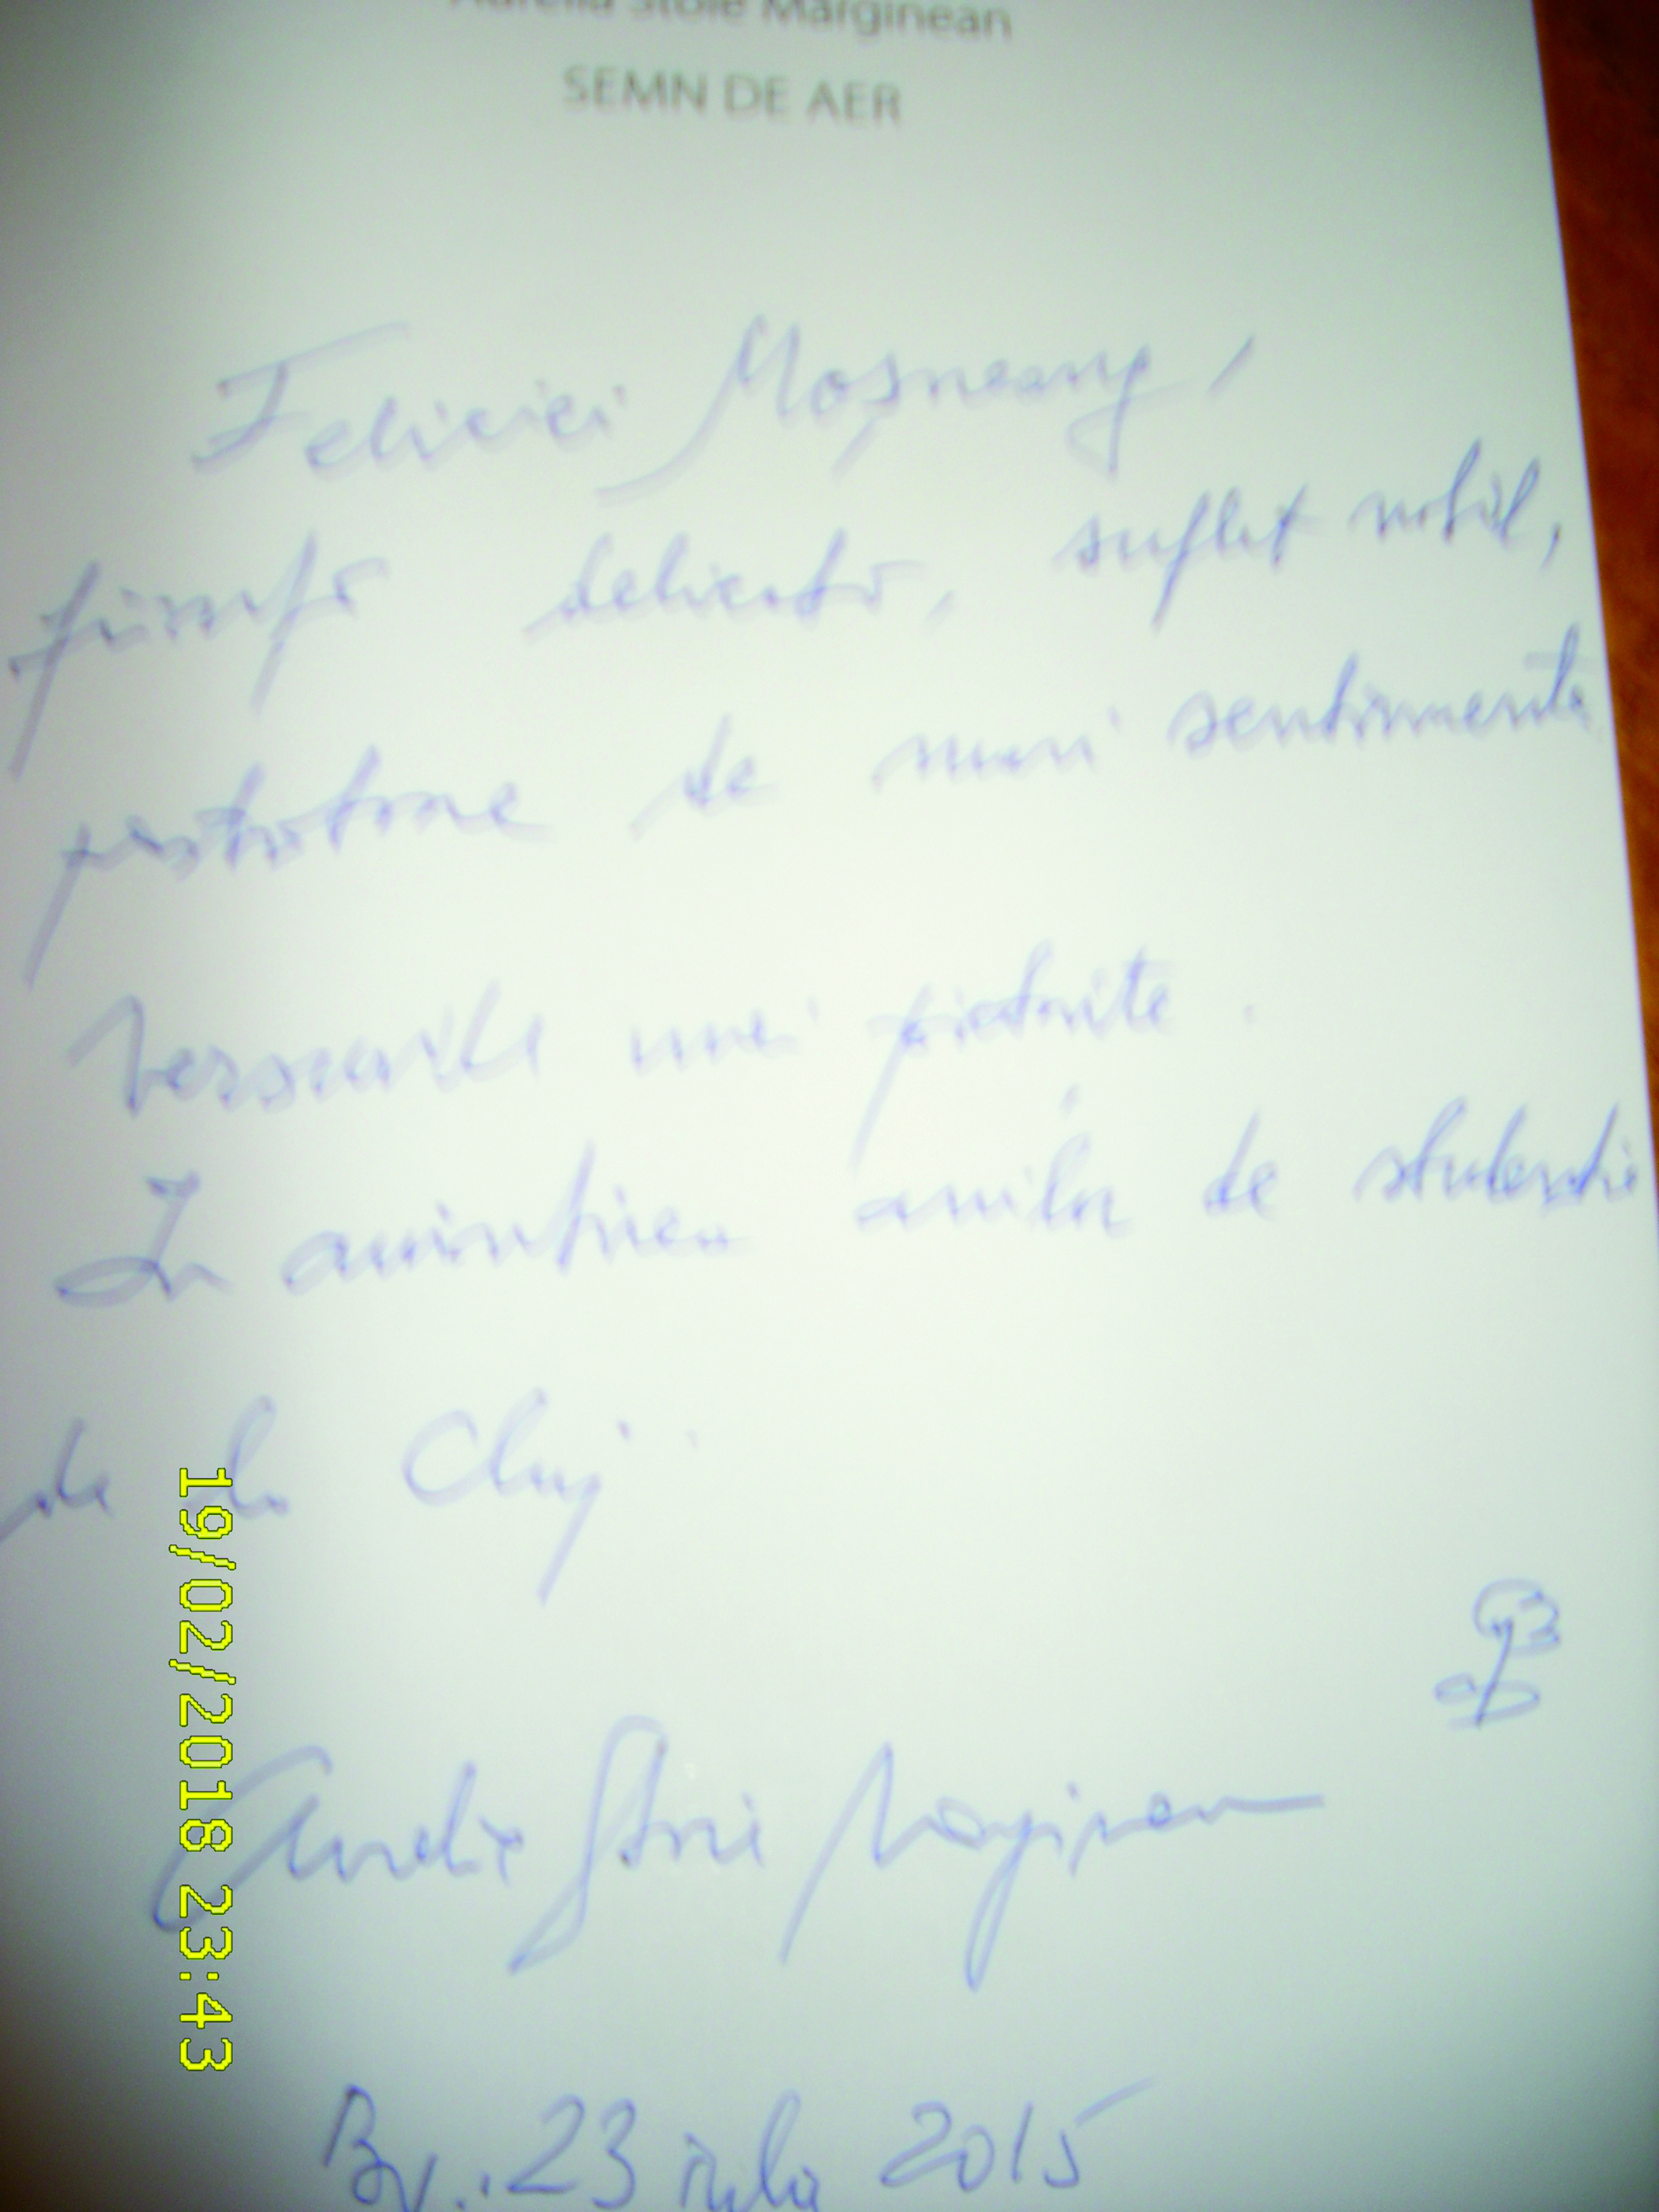 Aurelia Stoie Mărginean
SEMN DE AER
Feliciei Moșneang,
ființă delicată, suflet nobil,
păstrătoare de mari sentimente
versurile unei
În amintirea anilor de studenție
de la Cluj.
Aurelia Stoie Mărginean
Bv., 23 iulie 2015
19/02/2018 23:43